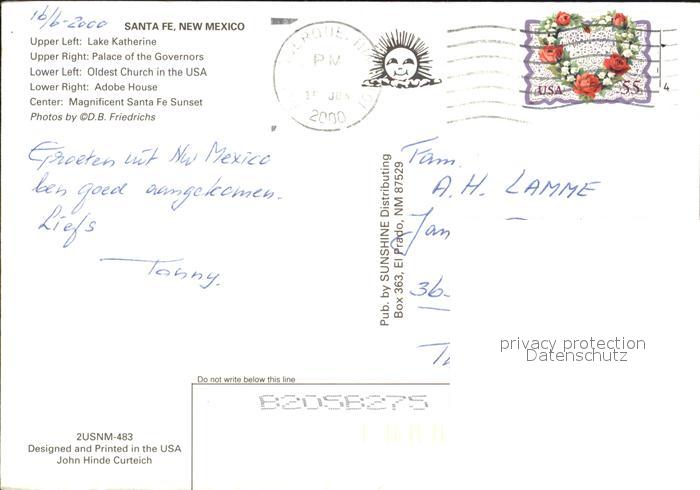 16/6-2000 SANTA FE, NEW MEXICO
Upper Left: Lake Katherine
Upper Right: Palace of the Governors
Lower Left: Oldest Church in the USA
Lower Right: Adobe House
Center: Magnificent Santa Fe Sunset
Photos by ©D.B. Friedrichs
PM
JUN
2000
USA 55
4
Groeten uit Nw Mexico
ben goed aangekomen.
Liefs
Tonny.
Pub. by SUNSHINE Distributing
Box 363, El Prado, NM 87529
Fam.
A.H. LAMME
Jan
36-
privacy protection
Datenschutz
Do not write below this line
B205B275
2USNM-483
Designed and Printed in the USA
John Hinde Curteich